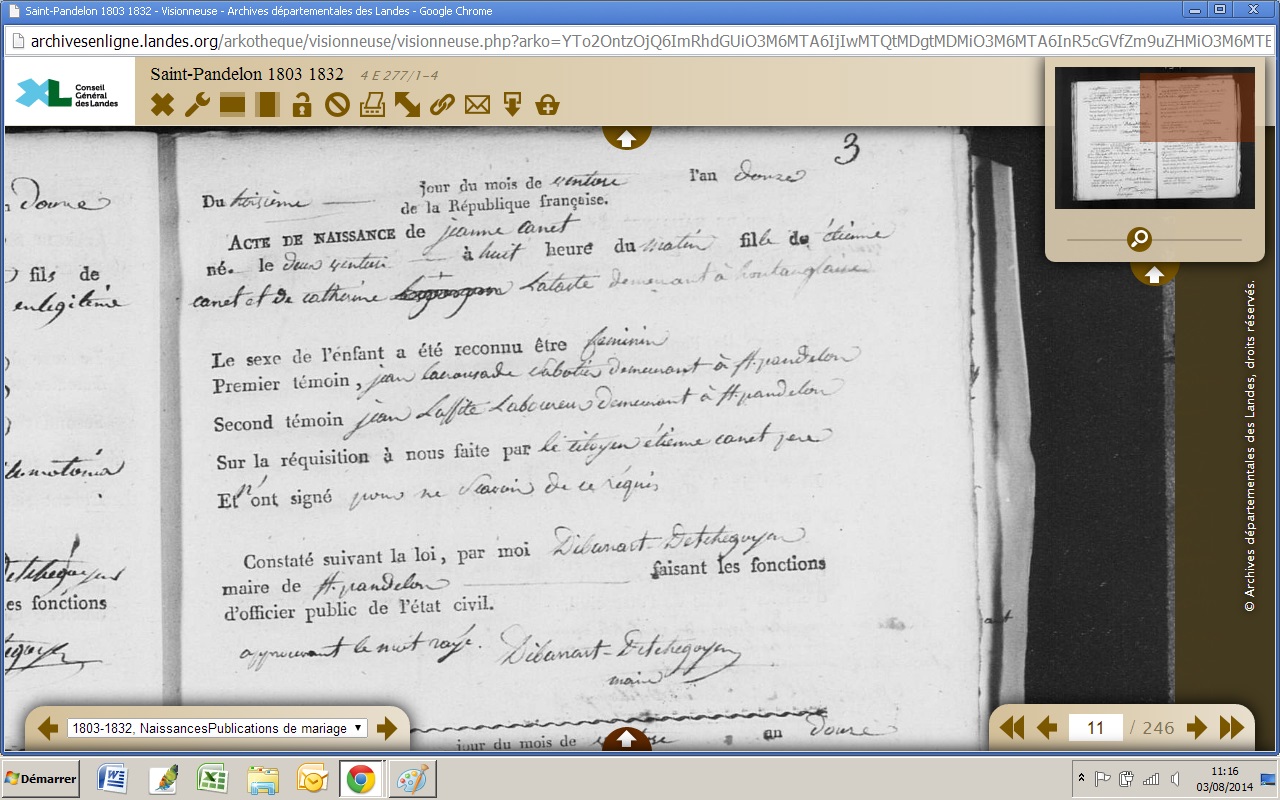 Saint-Pandelon 1803 1832 - Visionneuse - Archives départementales des Landes - Google Chrome
archivesenligne.landes.org/arkotheque/visionneuse/visionneuse.php?arko=
XL Conseil Général des Landes
Saint-Pandelon 1803 1832 4 E 277/1-4
3
Du troisième jour du mois de ventose l'an douze
de la République française.
ACTE DE NAISSANCE de jeanne canet
né. le deux ventose à huit heure du matin fille de étienne
canet et de catherine Lataste demeurant à
Le sexe de l'enfant a été reconnu être feminin
Premier témoin, jean demeurant à St. pandelon
Second témoin jean Laffite Laboureur demeurant à St. pandelon
Sur la réquisition à nous faite par le citoyen étienne canet pere
Et n'ont signé pour ne Scavoir de ce réquis
Constaté suivant la loi, par moi Detchegoyen
maire de St. pandelon faisant les fonctions
d'officier public de l'état civil.
approuvant le mot rayé. Detchegoyen
maire
jour du mois de ventose an douze
Douze
fils de
en legitime
Detchegoyen
es fonctions
© Archives départementales des Landes, droits réservés.
1803-1832, NaissancesPublications de mariage
11 / 246
Démarrer
11:16
03/08/2014